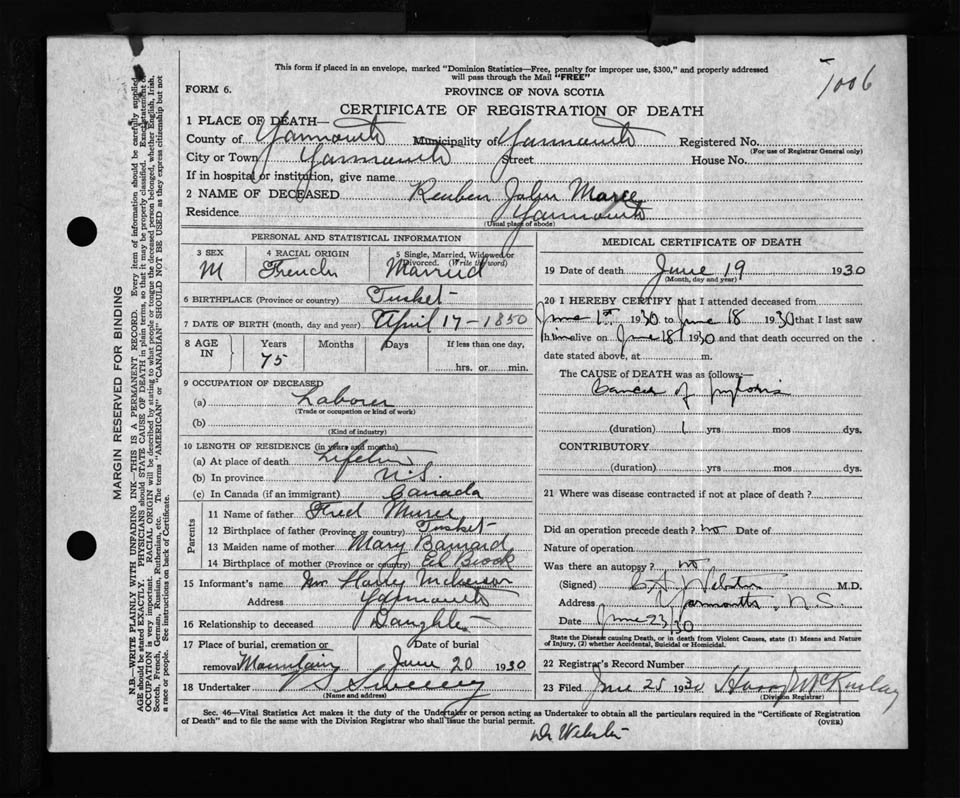 1006
This form if placed in an envelope, marked "Dominion Statistics—Free, penalty for improper use, $300," and properly addressed
will pass through the Mail "FREE"
FORM 6.
PROVINCE OF NOVA SCOTIA
CERTIFICATE OF REGISTRATION OF DEATH
1 PLACE OF DEATH—
County of Yarmouth Municipality of Yarmouth Registered No.
(For use of Registrar General only)
City or Town Yarmouth Street House No.
If in hospital or institution, give name
2 NAME OF DECEASED Reuben John
Residence Yarmouth
(Usual place of abode)
PERSONAL AND STATISTICAL INFORMATION
3 SEX 4 RACIAL ORIGIN 5 Single, Married, Widowed or Divorced. (Write the word)
M French Married
6 BIRTHPLACE (Province or country) Tusket
7 DATE OF BIRTH (month, day and year) April 17-1850
8 AGE IN Years Months Days If less than one day,
75 hrs. or min.
9 OCCUPATION OF DECEASED
(a) Laborer
(Trade or occupation or kind of work)
(b)
(Kind of industry)
10 LENGTH OF RESIDENCE (in years and months)
(a) At place of death Lifetime
(b) In province N.S.
(c) In Canada (if an immigrant) Canada
Parents
11 Name of father Fred
12 Birthplace of father (Province or country) Tusket
13 Maiden name of mother Mary
14 Birthplace of mother (Province or country) El Brook
15 Informant's name Harry
Address Yarmouth
16 Relationship to deceased Daughter
17 Place of burial, cremation or Date of burial
removal Mountain June 20 1930
18 Undertaker Sweeney
(Name and address)
MEDICAL CERTIFICATE OF DEATH
19 Date of death June 19 1930
(Month, day and year)
20 I HEREBY CERTIFY that I attended deceased from
June 1st 1930 to June 18 1930 that I last saw
him alive on June 18 1930 and that death occurred on the
date stated above, at m.
The CAUSE OF DEATH was as follows:—
Cancer of
(duration) 1 yrs mos dys.
CONTRIBUTORY
(duration) yrs mos dys.
21 Where was disease contracted if not at place of death?
Did an operation precede death? no Date of
Nature of operation
Was there an autopsy? no
(Signed) Webster M.D.
Address Yarmouth, N.S.
Date June 23 30
State the Disease causing Death, or in death from Violent Causes, state (1) Means and Nature
of Injury, (2) whether Accidental, Suicidal or Homicidal.
22 Registrar's Record Number
23 Filed June 25 1930 Harry
(Division Registrar)
Sec. 46—Vital Statistics Act makes it the duty of the Undertaker or person acting as Undertaker to obtain all the particulars required in the "Certificate of Registration
of Death" and to file the same with the Division Registrar who shall issue the burial permit.
(OVER)
Dr Webster
MARGIN RESERVED FOR BINDING
N.B.—WRITE PLAINLY WITH UNFADING INK—THIS IS A PERMANENT RECORD. Every item of information should be carefully supplied.
AGE should be stated EXACTLY. PHYSICIANS should STATE CAUSE OF DEATH in plain terms, so that it may be properly classified. Exact statement of
OCCUPATION is very important. RACIAL ORIGIN will be described by stating to what people or tongue the deceased person belonged, whether English, Irish,
Scotch, French, German, Russian, Ruthenian, etc. The terms "AMERICAN" or "CANADIAN" SHOULD NOT BE USED as they express citizenship but not
a race or people. See instructions on back of Certificate.